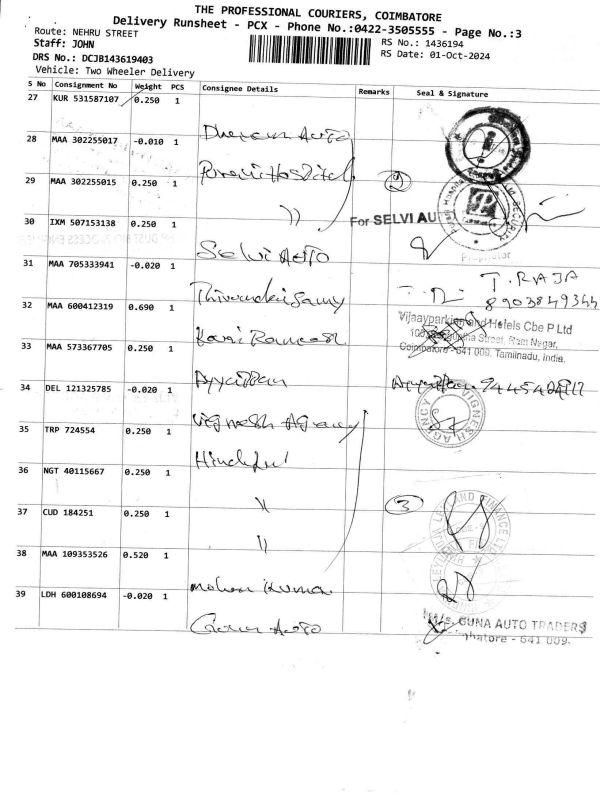 THE PROFESSIONAL COURIERS, COIMBATORE
Delivery Runsheet - PCX - Phone No.:0422-3505555 - Page No.:3
Route: NEHRU STREET
RS No.: 1436194
Staff: JOHN
RS Date: 01-Oct-2024
DRS No.: DCJB143619403
Vehicle: Two Wheeler Delivery
S No Consignment No Weight PCS Consignee Details Remarks Seal & Signature
27 KUR 531587107 0.250 1
28 MAA 302255017 -0.010 1
29 MAA 302255015 0.250 1
〃 2
30 IXM 507153138 0.250 1
For SELVI AUTO
Selvi Auto
Proprietor
31 MAA 705333941 -0.020 1
T. RAJA
8903849344
32 MAA 600412319 0.690 1
Vijaayparkien and Hotels Cbe P Ltd
Street, Ram Nagar,
33 MAA 573367705 0.250 1
Coimbatore - 641 009. Tamilnadu, India.
Ayyappan
34 DEL 121325785 -0.020 1
Vignesh Agency
VIGNESH AGENCY
35 TRP 724554 0.250 1
36 NGT 40115667 0.250 1
〃
37 CUD 184251 0.250 1
3
〃
38 MAA 109353526 0.520 1
Mohan Kumar
39 LDH 600108694 -0.020 1
GUNA AUTO TRADERS
641 009.